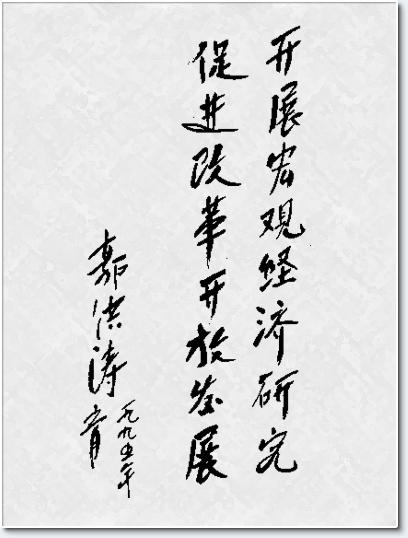 开展宏观经济研究
促进改革开放发展
郭洪涛
一九九五年
六月